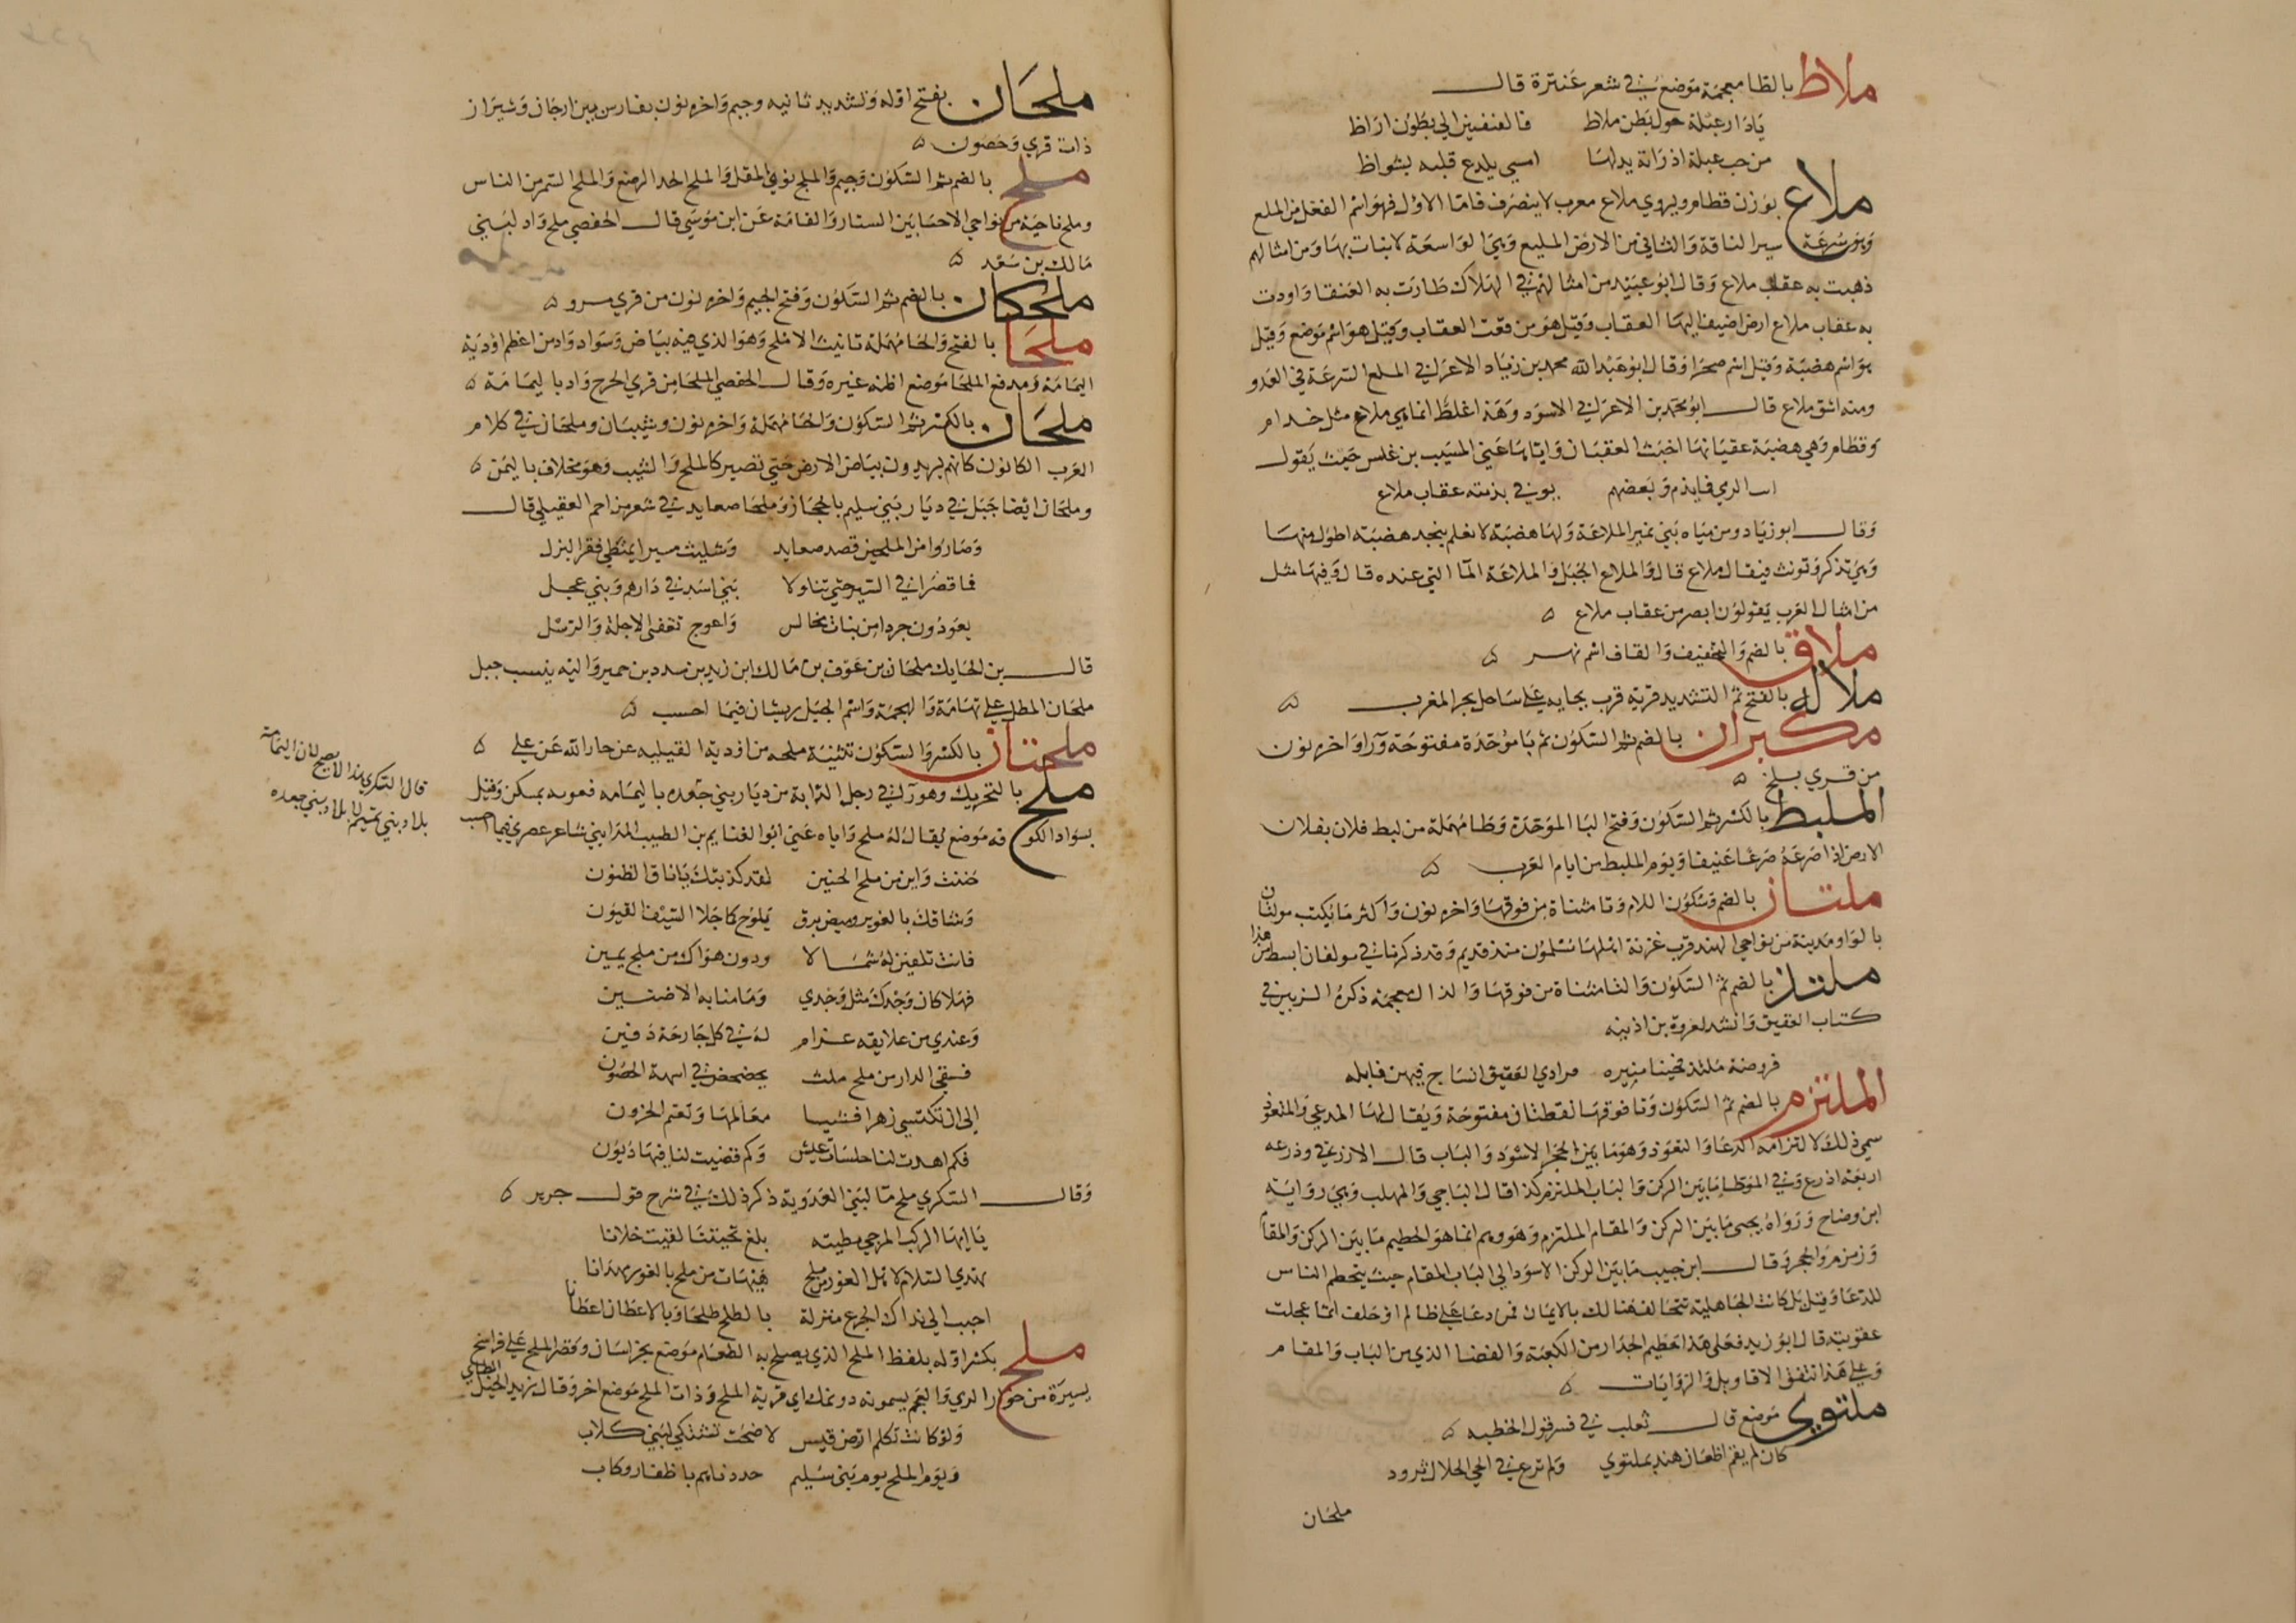 ملاظ بالظا معجمة موضع في شعر عنترة قال
يا دار عبلة حول بطن ملاظ فالغنفين الي بطون اراظ
من حب عبلة اذ راته يدلها امسي يلدع قلبه بشواظ
ملاع بوزن قطام ويروي ملاع معرب لا ينصرف فاما الاول فهو اسم الفعل من الملع
وهو سرعة سير الناقة والثاني من الارض المليع وهي الواسعة لا نبات بها ومن امثالهم
ذهبت به عقاب ملاع وقال ابو عبيد من امثالهم في الهلاك طارت به العنقا واودت
به عقاب ملاع ارض اضيف اليها العقاب وقيل هو من نعت العقاب وقيل هو اسم موضع وقيل
هو اسم هضبة وقيل اسم صحرا وقال ابو عبد الله محمد بن زياد الاعرابي الملع السرعة في العدو
ومنه اشق ملاع قال ابو محمد بن الاعرابي الاسود وهذا غلط انما هي ملاع مثل خدام
وقطام وهي هضبة عقبانها اخبث العقبان واياها عني المسيب بن علس حيث يقول
يوفي بذمته عقاب ملاع
وقال ابو زياد ومن مياه بني نمير الملاعة ولها هضبة لا نعلم بنجد هضبة اطول منها
وهي تذكر وتونث فيقال ملاع قال والملاع الجبل والملاعة الما التي عنده قال وفيها مثل
من امثال العرب يقولون ابصر من عقاب ملاع ه
ملاق بالضم والتخفيف والقاف اسم نهر ه
ملاله بالفتح ثم التشديد قرية قرب بجايه علي ساحل بحر المغرب ه
مكبران بالضم ثم السكون ثم با موحدة مفتوحة ورا واخره نون
من قري بلخ ه
الملبط بالكسر ثم السكون وفتح البا الموحدة وطا مهملة من لبط فلان بفلان
الارض اذا صرعه صرعا عنيفا ويوم الملبط من ايام العرب ه
ملتان بالضم وسكون اللام وتا مثناة من فوقها واخره نون واكثر ما يكتب مولتان
بالواو مدينة من نواحي الهند قرب غزنة اهلها مسلمون منذ قديم وقد ذكرنا في مولتان ابسط من هذا
ملتذ بالضم ثم السكون والتا مثناة من فوقها والذال معجمة ذكره الزبير في
كتاب العقيق وانشد لعروة بن اذينه
فروضة ملتذ فجنبا منيره فوادي العقيق انساح فيهن فابله
الملتزم بالضم ثم السكون وتا فوقها نقطتان مفتوحة ويقال لها المدعي والمتعوذ
سمي ذلك لالتزامه الدعا والتعوذ وهو ما بين الحجر الاسود والباب قال الازرقي وذرعه
اربعة اذرع وفي الموطا ما بين الركن والباب الملتزم كذا قال الباجي والمهلب وهي رواية
ابن وضاح ورواه يحيي ما بين الركن والمقام الملتزم وهو وهم انما هو الحطيم ما بين الركن والمقام
وزمزم والحجر وقال ابن حبيب ما بين الركن الاسود الي الباب المقام حيث يتحطم الناس
للدعا وقيل بل كانت الجاهلية تتحالف هنالك بالايمان فمن دعا علي ظالم او حلف اثما عجلت
عقوبته قال ابو زيد فعلي هذا حطيم الجدار من الكعبة والفضا الذي من الباب والمقام
وعلي هذا تتفق الاقاويل والروايات ه
ملتوي موضع قال ثعلب في فسر قول الحطيه ه
كان لم يقم اظعان هند بملتوي ولم ترع في الحي الحلال ثرود
ملحان
ملحان بفتح اوله وتشديد ثانيه وجيم واخره نون بفارس بين ارجان وشيراز
ذات قري وحصون ه
ملح بالضم ثم السكون وجيم والملج نوي المقل والملج الجدا الرضع والملج السمر من الناس
وملج ناحية من نواحي الاحسا بين الستار والقاعة عن ابن موسي قال الحفصي ملج واد لبني
مالك بن سعد ه
ملجكان بالضم ثم السكون وفتح الجيم واخره نون من قري مرو ه
ملحا بالفتح والحا مهملة تانيث الاملح وهو الذي فيه بياض وسواد واد من اعظم اودية
اليمامة ومدفع الملحا موضع اظنه غيره وقال الحفصي الملحا من قري الخرج واد باليمامة ه
ملحان بالكسر ثم السكون والحا مهملة واخره نون وشيبان وملحان في كلام
العرب الكانون كانهم يريدون بياض الارض حتي تصير كالملح والشيب وهو مخلاف باليمن ه
وملحان ايضا جبل في ديار بني سليم بالحجاز وملحا صعايد في شعر مزاحم العقيلي قال
وصاروا من الملحين قصد صعايد وتثليث سيرا يمتطي فقر البزل
فما قصرا في السير حتي تناولا بني اسد في دارهم وبني عجل
يعودون جردا من بنات مخالس واعوج تقفي الاجلة والرسل
قال بن الحايك ملحان بن عوف بن مالك ابن زيد بن سدد بن حمير واليه ينسب جبل
ملحان المطل علي تهامة والهجمة واسم الجبل ريشان فيما احسب ه
ملحتان بالكسر والسكون تثنية ملحه من اودية القبليه عن جار الله عن علي ه
ملح بالتحريك وهو دا في رجل الدابة من ديار بني جعده باليمامه وقيل
بسواد الكوفه موضع يقال له ملح واياه عني ابو الغنايم بن الطيب المدايني شاعر عصري فيما احسب
قال السكري هذا لا يصح لان اليمامة
بلاد بني تميم لا بلاد بني جعده
حننت واين من ملح الحنين لقد كذبتك يا ناق الظنون
وشاقك بالغوير وميض برق يلوح كما جلا السيف القيون
فانت تلفتين له شمالا ودون هواك من ملح يمين
فهلا كان وجدك مثل وجدي وما منا به الا ضنين
وعندي من علايقه غرام له في كل جارحة دفين
فسقي الدار من ملح ملث
الي ان تكتسي زهرا قشيبا معالمها وتعتم الحزون
فكم اهدت لنا خلسات عيش وكم قضيت لنا فيها ديون
وقال السكري ملح ما لبني العدوية ذكر ذلك في شرح قول جرير ه
يا ايها الركب المزجي مطيته بلغ تحيتنا لقيت حملانا
نهدي السلام لاهل الغور من ملح هيهات من ملح بالغور مهدانا
احبب الي بذاك الجزع منزلة بالطلح طلحا وبالاعطان اعطانا
ملح بكسر اوله بلفظ الملح الذي يصلح به الطعام موضع بخراسان وقصر الملح علي فراسخ
يسيرة من خوار الري والعجم يسمونه ده نمك اي قرية الملح وذات الملح موضع اخر وقال زيد الخيل الطايي
ولو كانت تكلم ارض قيس لاضحت تشتكي لبني كلاب
ويوم الملح يوم بني سليم حددناهم باظفار وناب